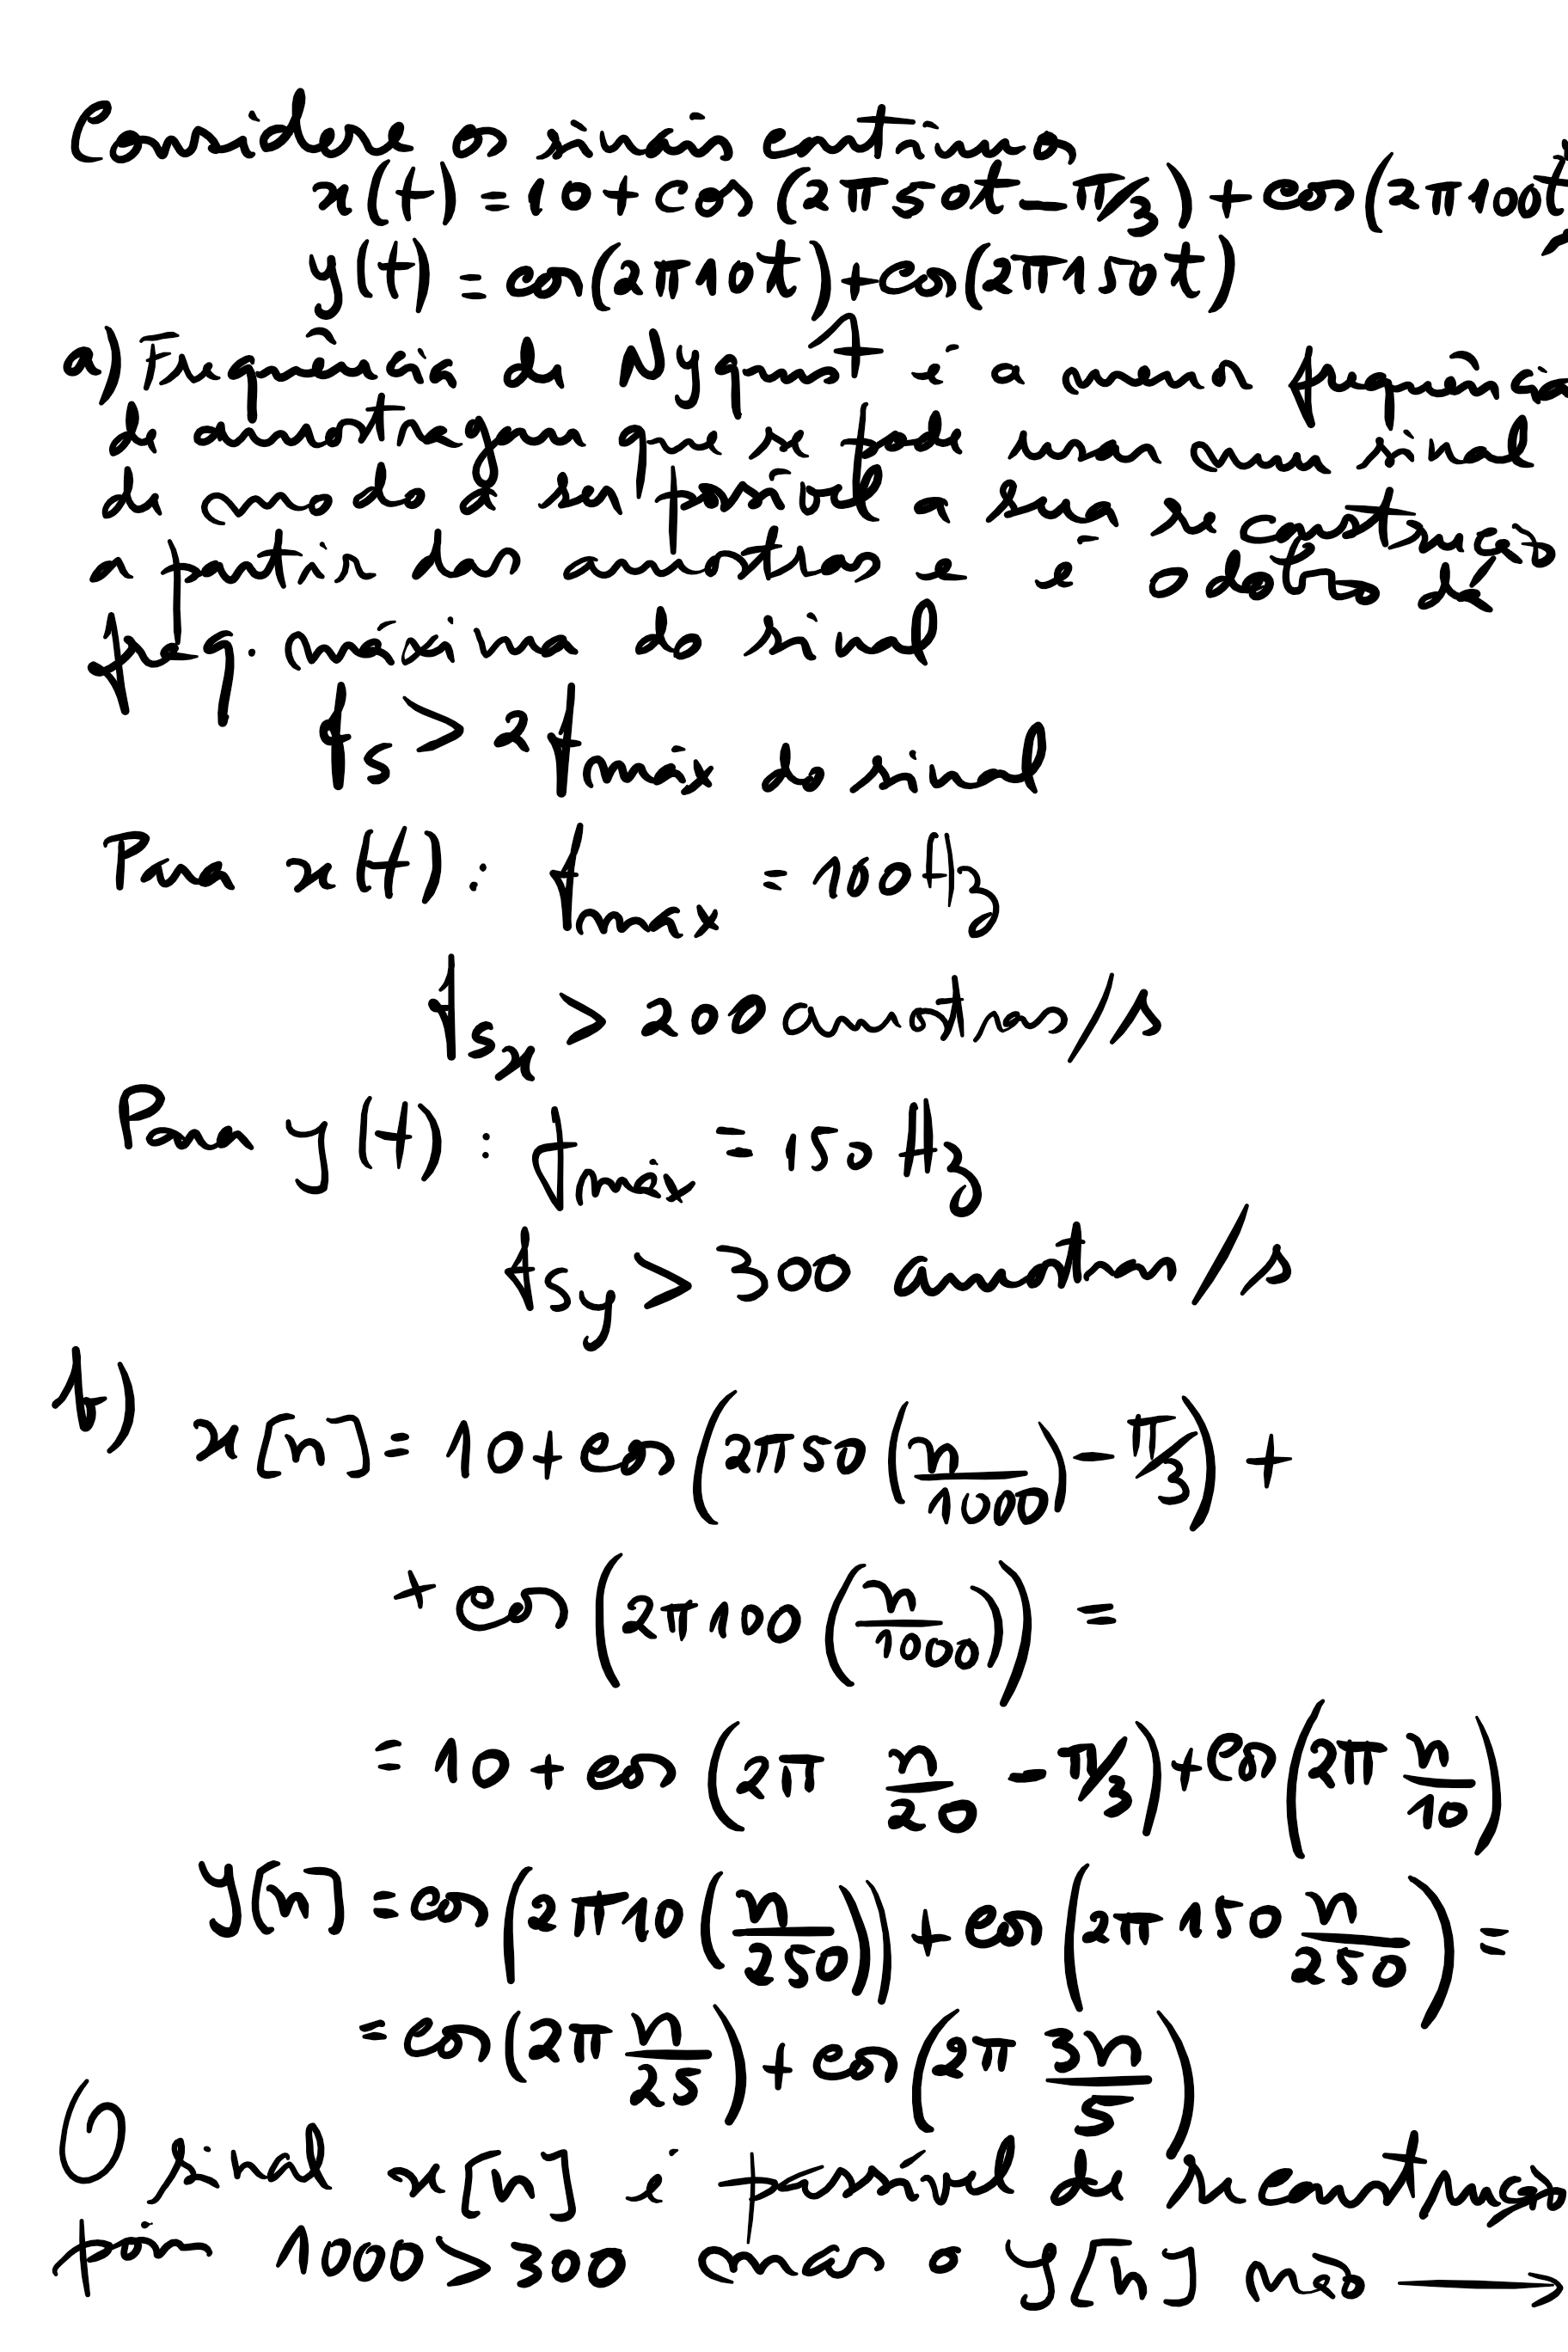 Considere os sinais contínuos
x(t) = 10 + cos(2π50t - π/3) + cos(2π100t)
y(t) = cos(2π10t) + cos(2π150t)
a) Frequência de Nyquist é a menor frequência
de amostragem que se pode usar num sinal
de modo a ser possível a sua reconstrução
a partir das amostras e é o dobro da
freq. máxima do sinal
fs > 2fmáx do sinal
Para x(t): fmax = 100Hz
fsx > 200 amostras/s
Para y(t): fmáx = 150 Hz
fsy > 300 amostras/s
b) x[n] = 10 + cos(2π50(n/1000) - π/3) +
+ cos(2π100(n/1000)) =
= 10 + cos(2π n/20 - π/3) + cos(2π n/10)
y[n] = cos(2π10(n/250)) + cos(2π150 n/250) =
= cos(2π n/25) + cos(2π 3n/5)
O sinal x[n] é possível de reconstrução
pois 1000 > 300 mas o y[n] não →